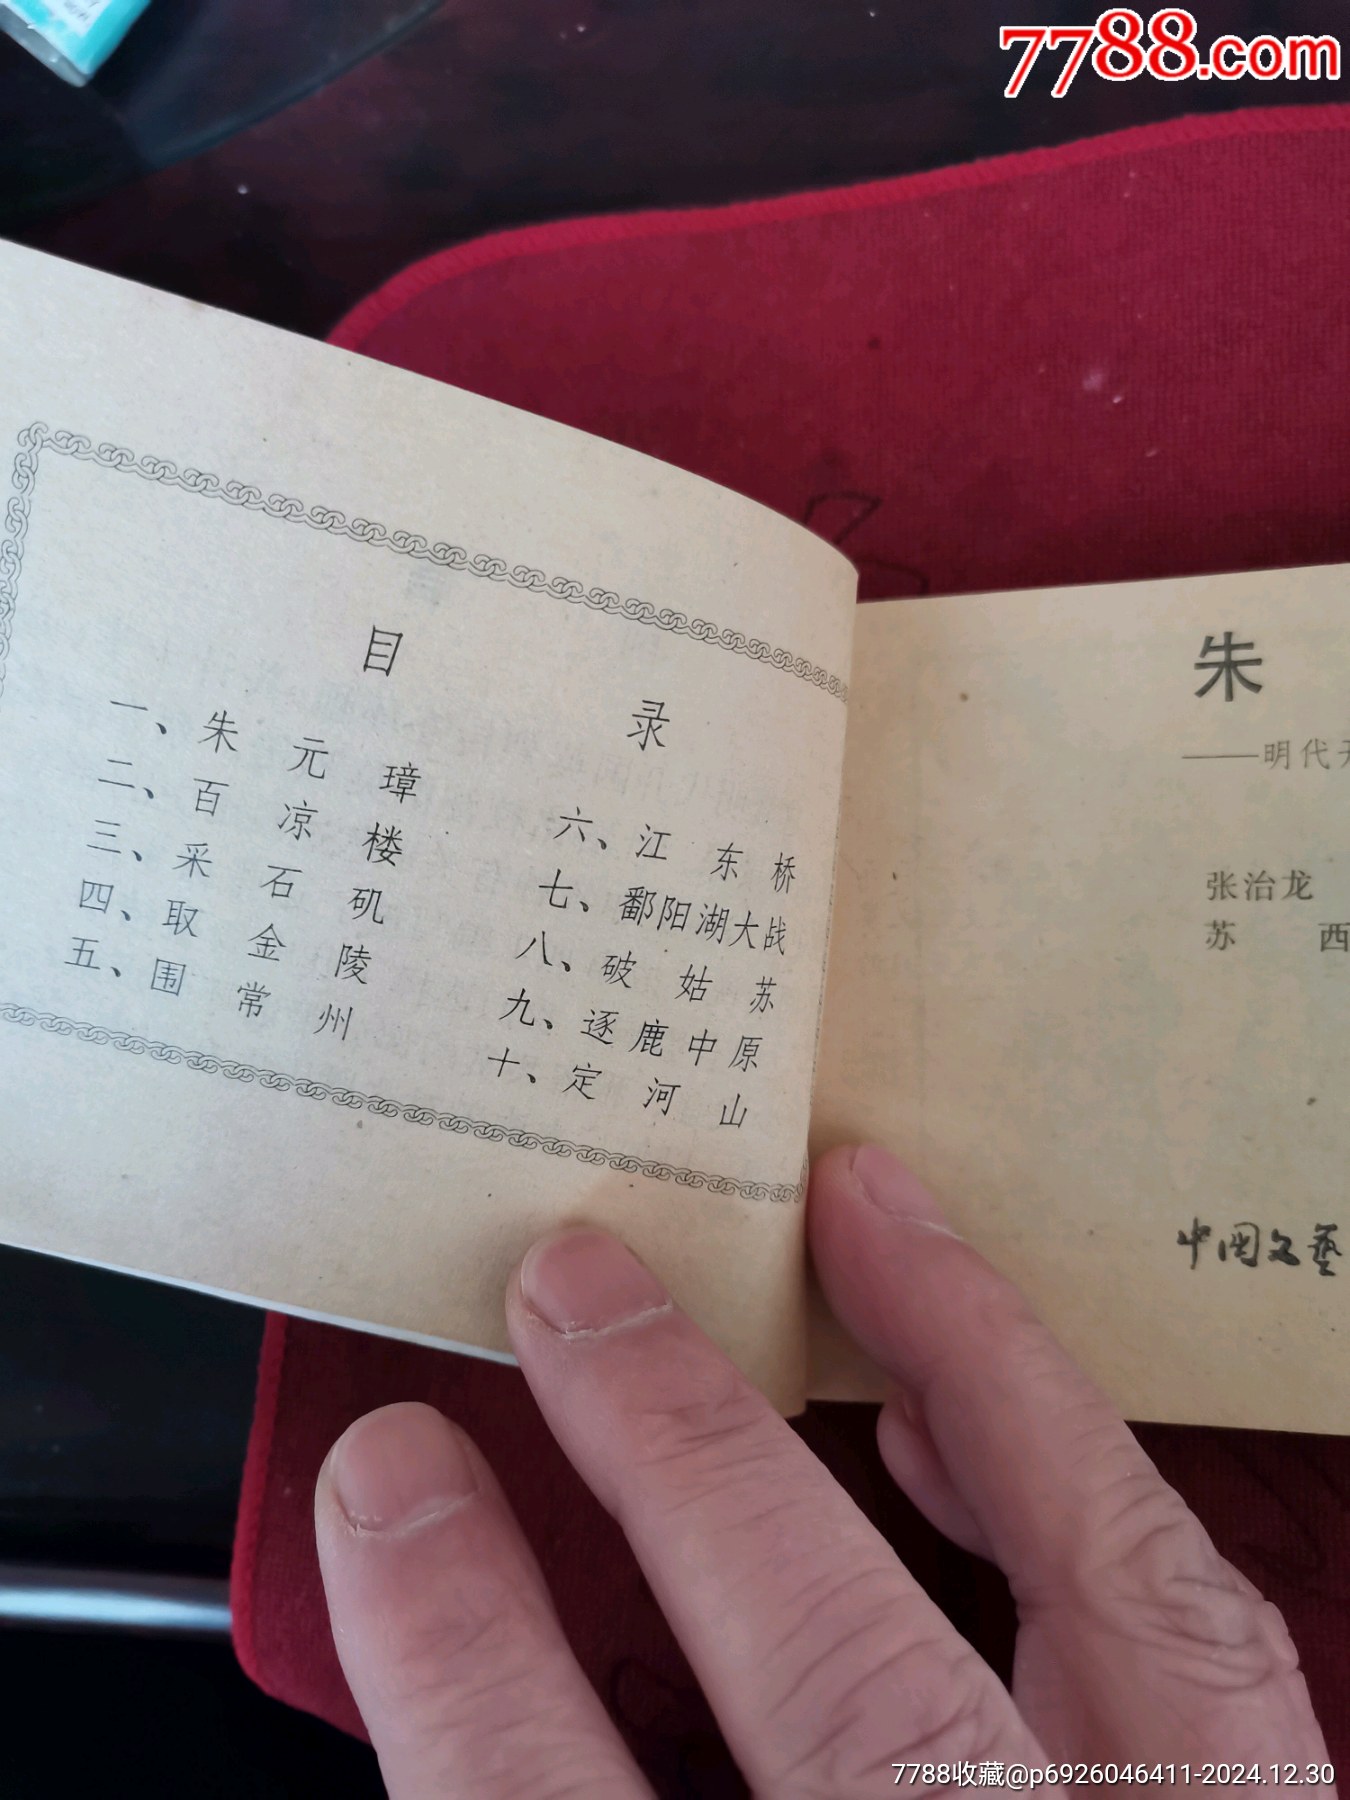 7788.com
目 录
一、朱元璋
二、百凉楼
三、采石矶
四、取金陵
五、围常州
六、江东桥
七、鄱阳湖大战
八、破姑苏
九、逐鹿中原
十、定河山
朱
——明代开
张治龙
苏 西
中国文艺
7788收藏@p6926046411-2024.12.30